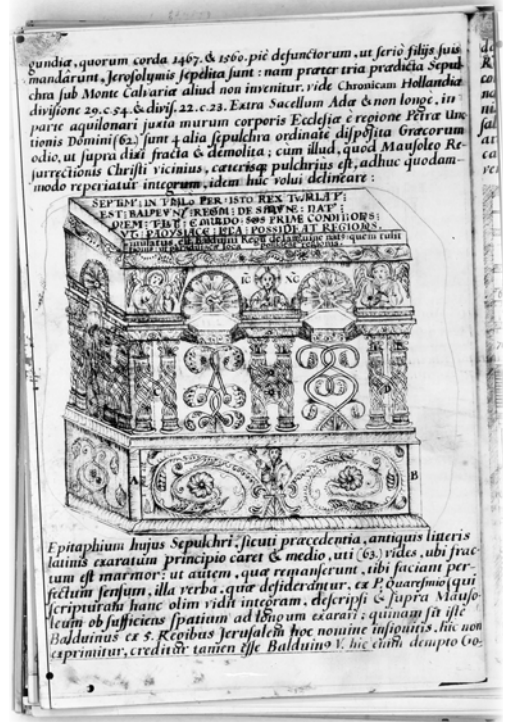 gundiæ, quorum corda 1467. & 1560. piè defunctorum, ut seriò filijs suis
mandârunt, Jerosolymis sepelita sunt: nam præter tria prædicta Sepul
chra sub Monte Calvariæ aliud non invenitur. vide Chronicam Hollandiæ
divisione 29. c. 54. & divis. 22. c. 23. Extra Sacellum Adæ & non longè, in
parte aquilonari juxta murum corporis Ecclesiæ è regione Petræ Unc
tionis Domini (62.) sunt 4 alia sepulchra ordinatè disposita Græcorum
odio, ut supra dixi fracta & demolita; cùm illud, quod Mausoleo Re-
surrectionis Christi vicinius, cæterisq pulchrius est, adhuc quodam-
modo reperiatur integrum, idem huc volui delineare:
SEPTIM' IN TVMLO PER ISTO REX TVMLAT':
EST BALDEVN' REGVM DE SANGVINE NAT'
QUEM TVLIT E MVNDO SORS PRIMÆ CONDITIONIS:
VT PADYSIACE LOCA POSSIDEAT REGIONIS.
est Balduini Regū de sanguine nats quem tulit
loca possideat regionis.
IC XC
C
D
A
B
Epitaphium hujus Sepulchri, sicuti præcedentia, antiquis litteris
latinis exaratum principio caret & medio, uti (63.) vides, ubi frac-
tum est marmor: ut autem, quæ remanserunt, tibi faciant per-
fectum sensum, illa verba, quæ desiderantur, ex P. Quaresmio (qui
scripturam hanc olim vidit integram, descripsi & supra Mauso-
leum ob sufficiens spatium ad longum exaravi: quinam sit iste
Balduinus ex 5. Regibus Jerusalem hoc nomine insignitis, hic non
exprimitur, creditur tamen esse Balduinꝰ V. hic enim dempto Go-